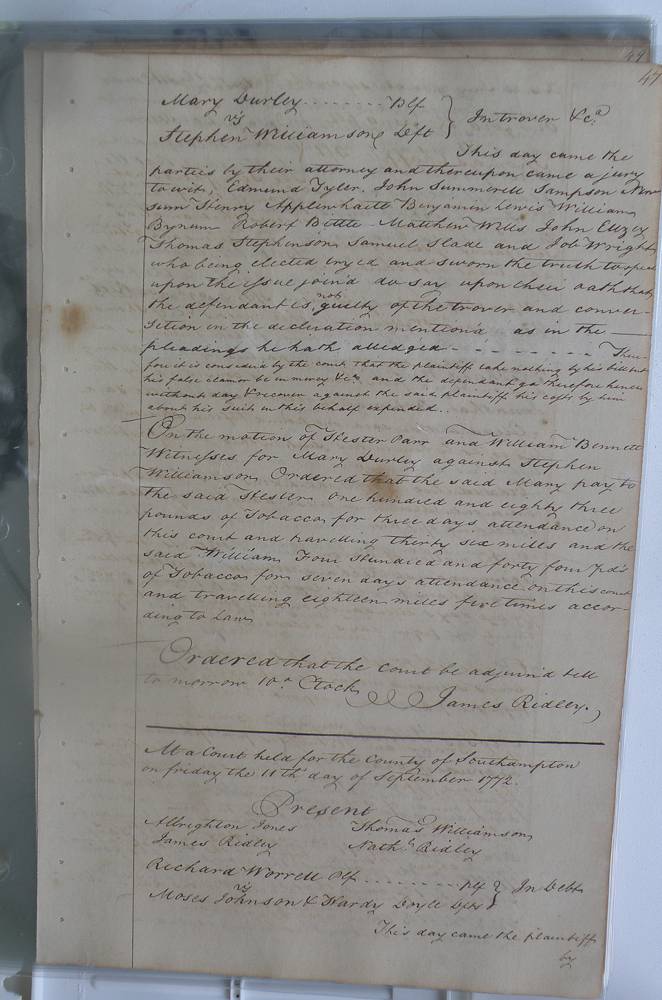 49
47
Mary Durley ........ Plf } In trover &c.a
vs
Stephen Williamson Deft
This day came the
parties by their attorney and thereupon came a jury
to wit, Edmund Tyler, John Summerell Sampson New
sum Henry Applewhaite Benjamin Lewis William
Bynum Robert Bittle Matthew Wills John Elzey
Thomas Stephenson Samuel Slade and Job Wright
who being elected tryed and sworn the truth to speak
upon the issue join'd do say upon their oath that
the defendant is not guilty of the trover and conver-
sition in the declaration mention'd as in the
pleadings he hath alledged - - - - - - - - There-
fore it is consider'd by the court that the plaintiff take nothing by his bill but
his false clamor be in mercy &c. and the defendant go therefore hence
without day & recover against the said plaintiff his costs by him
about his suit in this behalf expended..
On the motion of Hester Parr and William Bennett
Witnesses for Mary Durley against Stephen
Williamson Ordered that the said Mary pay to
the said Hester one hundred and eighty three
pounds of Tobacco for three days attendance on
this court and travelling thirty six miles and the
said William Four Hundred and forty four pds
of Tobacco for seven days attendance on this court
and travelling eighteen miles five times accor-
ding to Law
Ordered that the court be adjourn'd till
to morrow 10 o Clock James Ridley.
At a Court held for the County of Southampton
on friday the 11th day of September 1772.
Present
Albrighton Jones Thomas Williamson
James Ridley Nath.l Ridley
Richard Worrell Plf ......... Plf } In Debt
vs
Moses Johnson & Hardy Doyle Defts
This day came the plaintiff
by